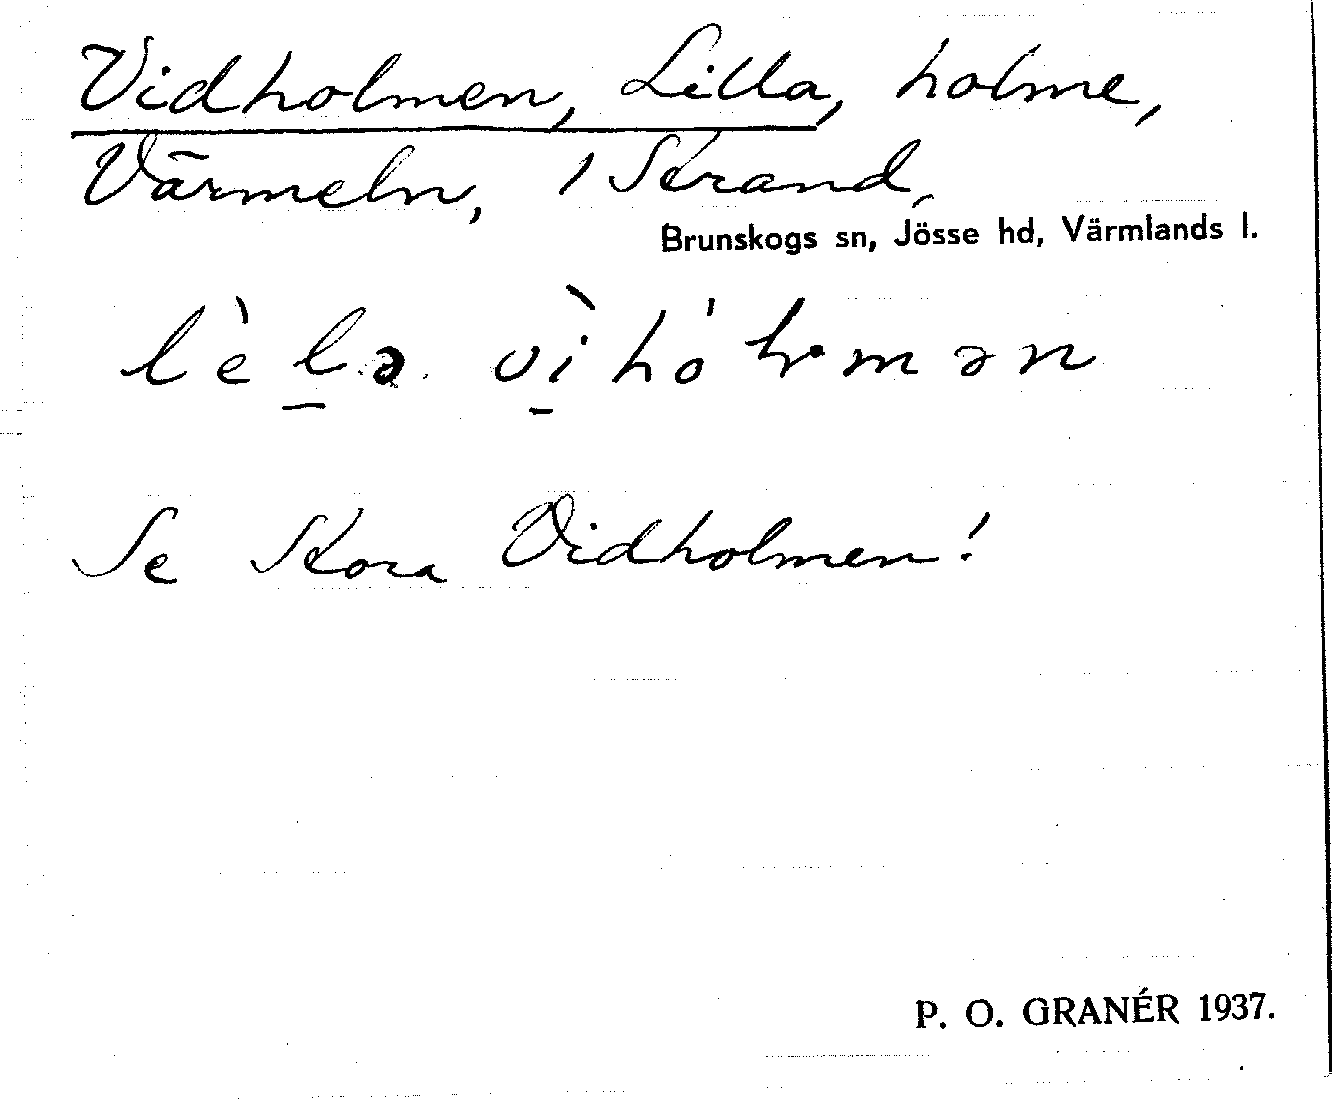 Vidholmen, Lilla, holme,
Värmeln, 1 Strand,
Brunskogs sn, Jösse hd, Värmlands l.
Se Stora Vidholmen!
P. O. GRANÉR 1937.